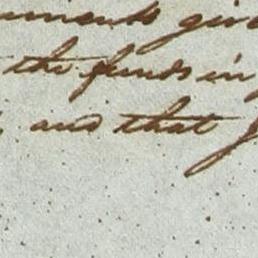 uments giv
the funds in
and that